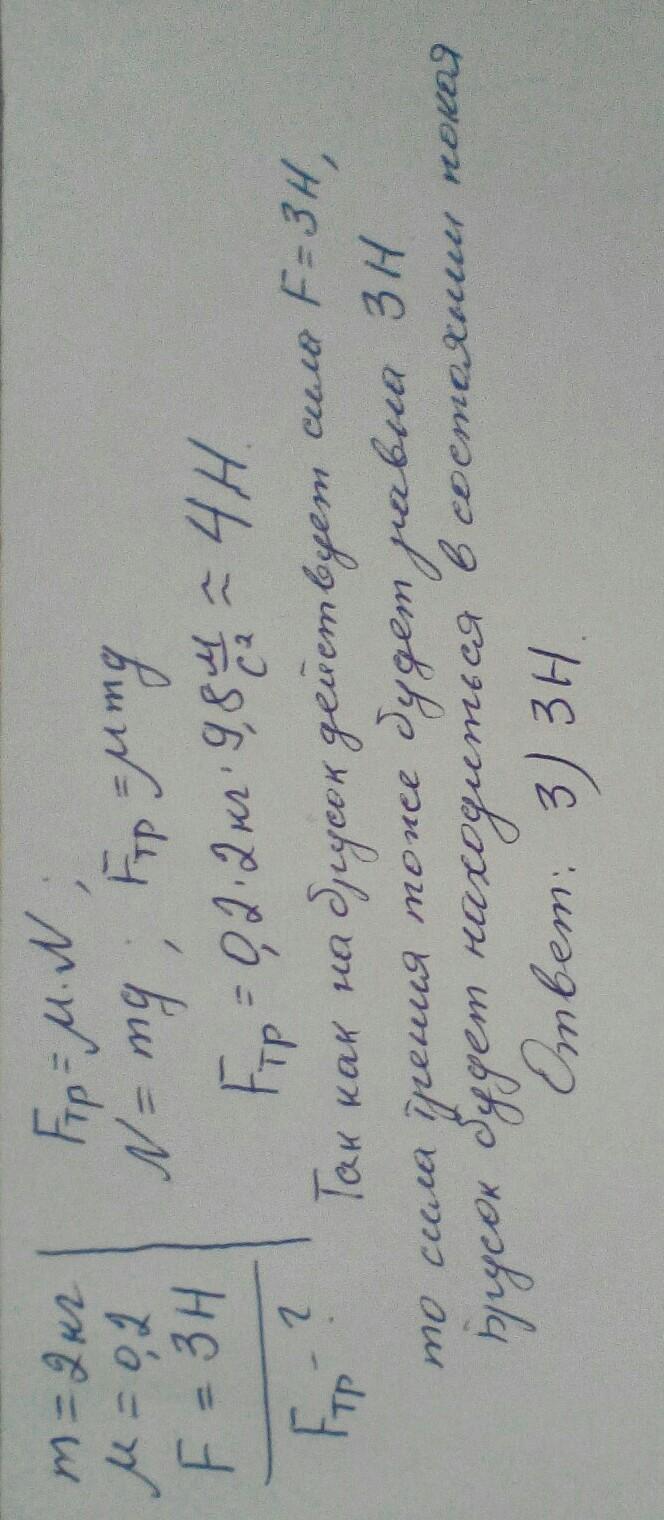 m = 2 кг
μ = 0,2
F = 3 Н
Fтр - ?
Fтр = μ·N ;
N = mg ; Fтр = μmg
Fтр = 0,2·2кг·9,8 м/с² ≈ 4Н.
Так как на брусок действует сила F = 3Н,
то сила трения тоже будет равна 3Н
Брусок будет находиться в состоянии покоя
Ответ: 3) 3Н.